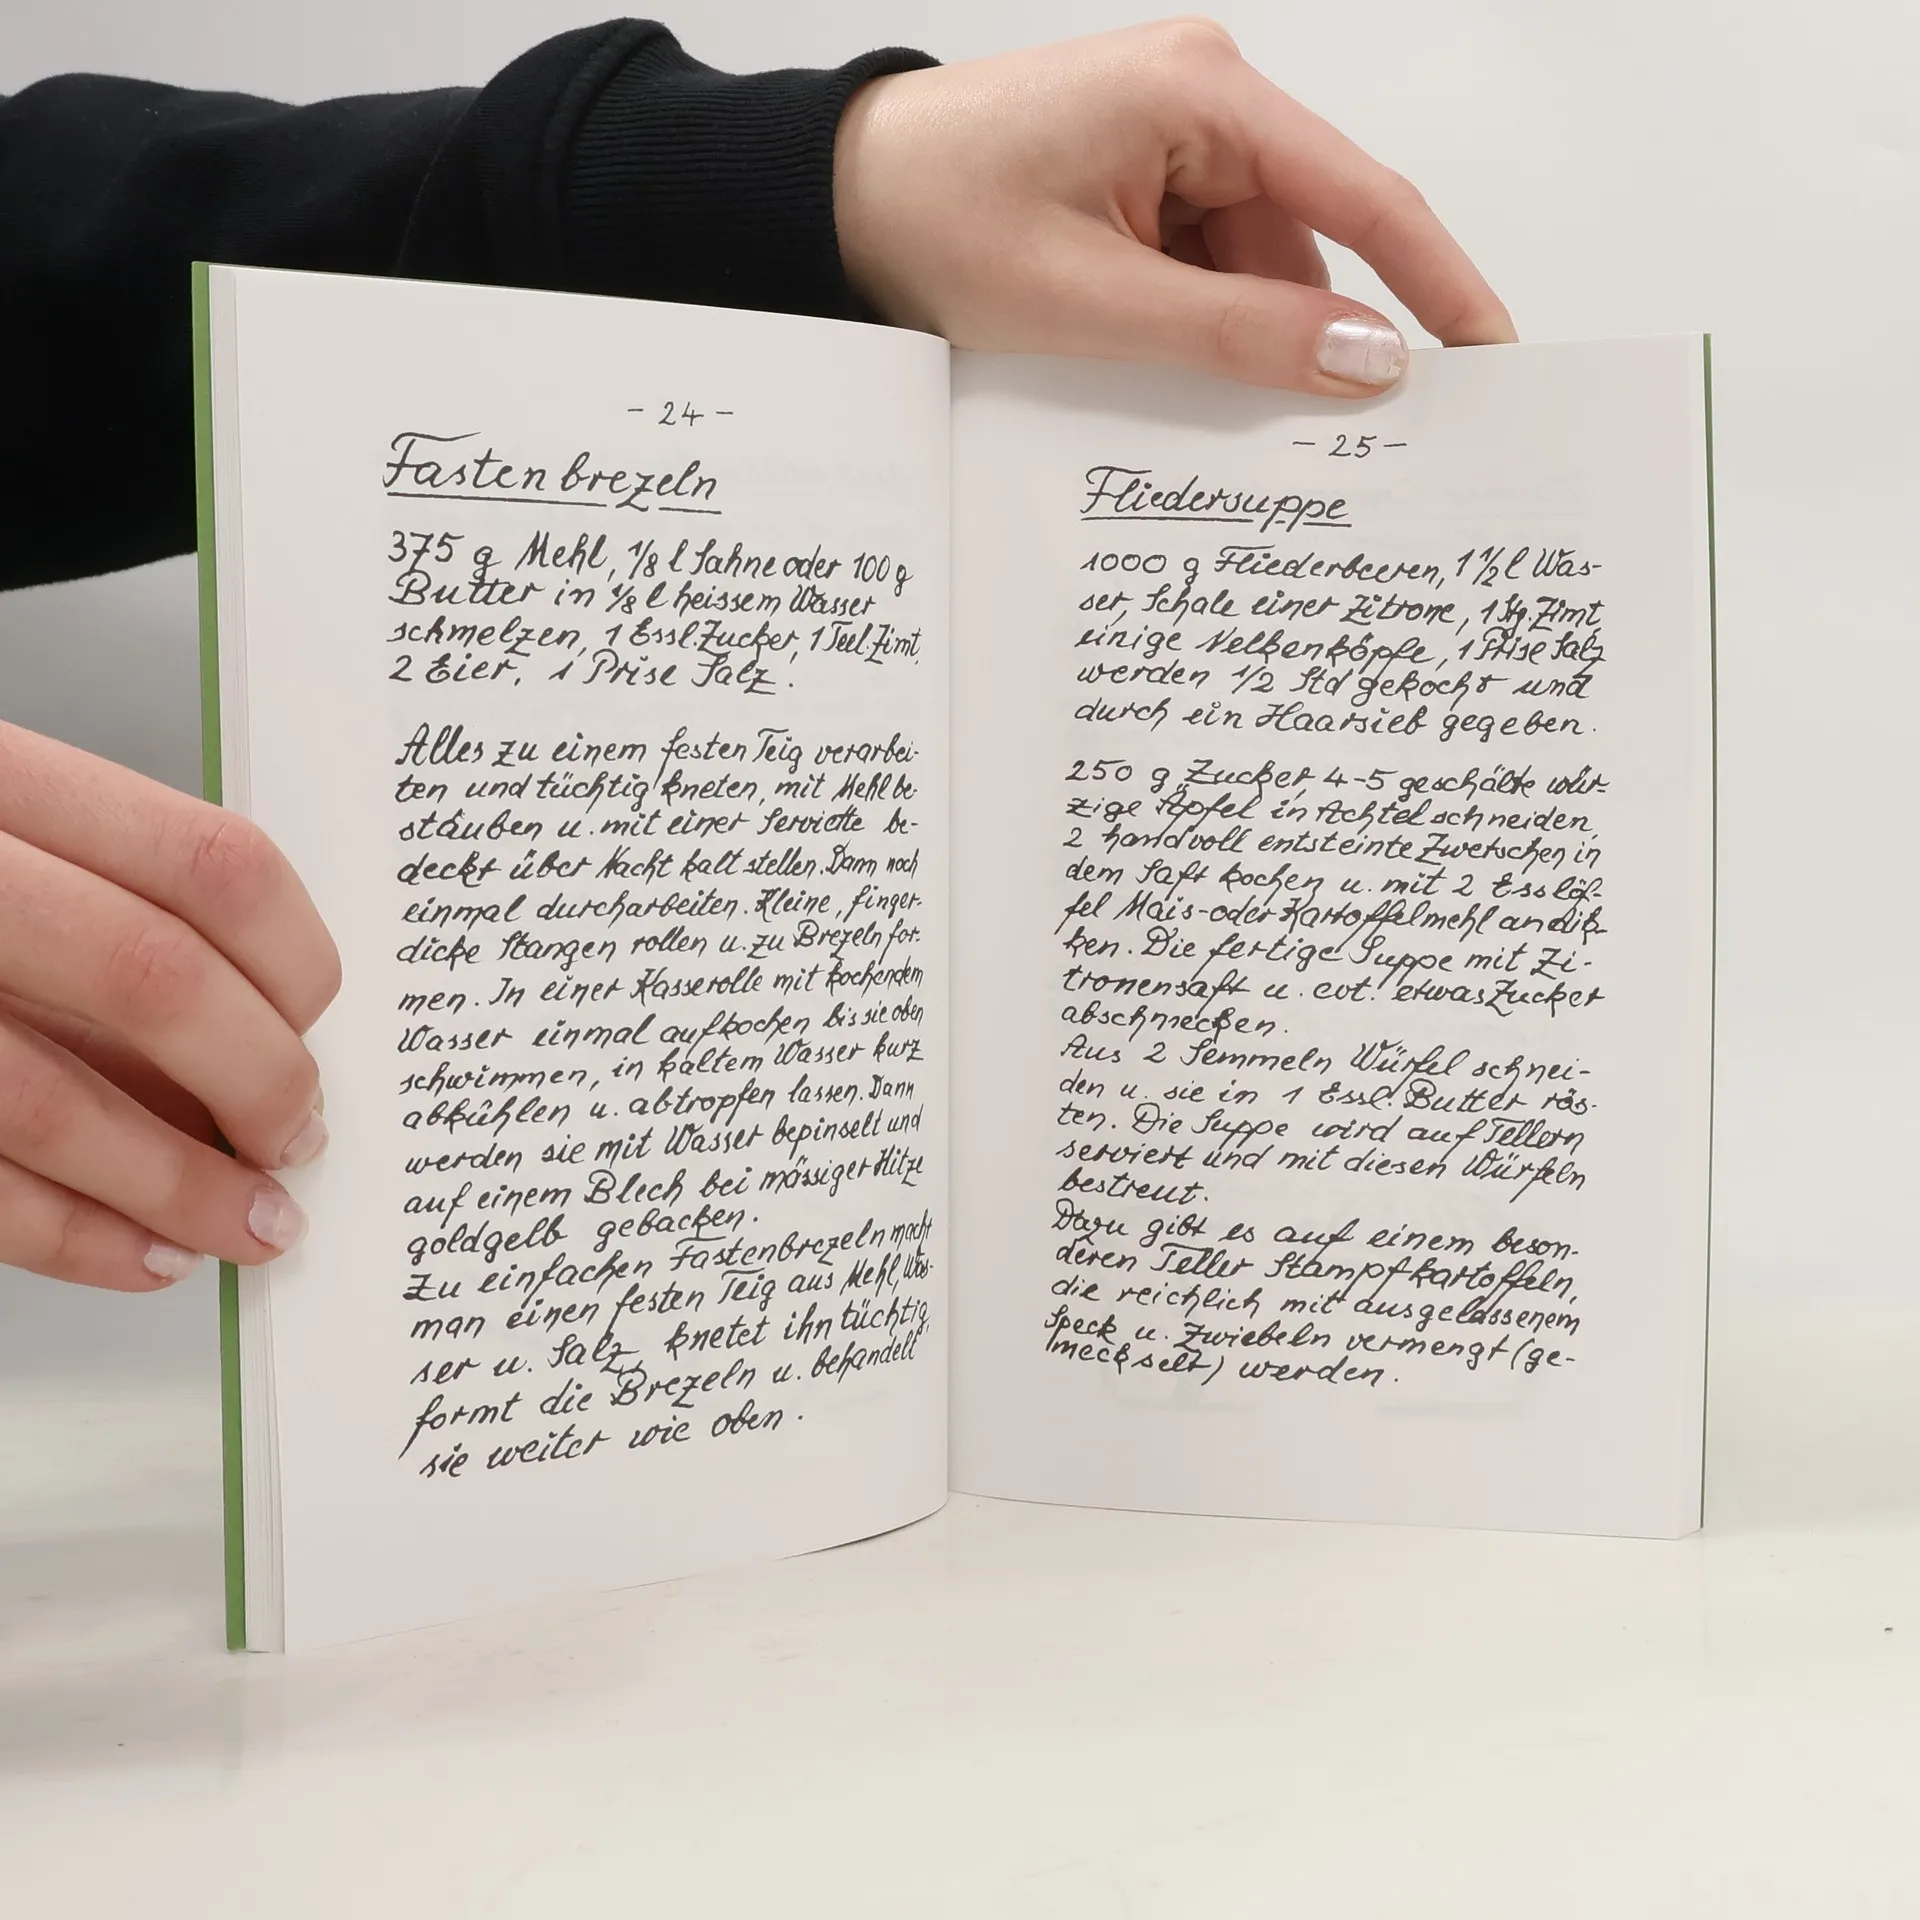 - 24 -
Fastenbrezeln
375 g Mehl, 1/8 l Sahne oder 100 g
Butter in 1/8 l heissem Wasser
schmelzen, 1 Essl. Zucker, 1 Teel. Zimt,
2 Eier, 1 Prise Salz.
Alles zu einem festen Teig verarbei-
ten und tüchtig kneten, mit Mehl be-
stäuben u. mit einer Serviette be-
deckt über Nacht kalt stellen. Dann noch
einmal durcharbeiten. Kleine, finger-
dicke Stangen rollen u. zu Brezeln for-
men. In einer Kasserolle mit kochendem
Wasser einmal aufkochen bis sie oben
schwimmen, in kaltem Wasser kurz
abkühlen u. abtropfen lassen. Dann
werden sie mit Wasser bepinselt und
auf einem Blech bei mässiger Hitze
goldgelb gebacken.
Zu einfachen Fastenbrezeln macht
man einen festen Teig aus Mehl, Was-
ser u. Salz, knetet ihn tüchtig,
formt die Brezeln u. behandelt
sie weiter wie oben.
- 25 -
Fliedersuppe
1000 g Fliederbeeren, 1 1/2 l Was-
ser, Schale einer Zitrone, 1 Stg. Zimt,
einige Nelkenköpfe, 1 Prise Salz
werden 1/2 Std gekocht und
durch ein Haarsieb gegeben.
250 g Zucker, 4-5 geschälte wür-
zige Äpfel in Achtel schneiden,
2 handvoll entsteinte Zwetschen in
dem Saft kochen u. mit 2 Esslöf-
fel Mais- oder Kartoffelmehl andik-
ken. Die fertige Suppe mit Zi-
tronensaft u. evt. etwas Zucker
abschmecken.
Aus 2 Semmeln Würfel schnei-
den u. sie in 1 Essl. Butter rös-
ten. Die Suppe wird auf Tellern
serviert und mit diesen Würfeln
bestreut.
Dazu gibt es auf einem beson-
deren Teller Stampfkartoffeln,
die reichlich mit ausgelassenem
Speck u. Zwiebeln vermengt (ge-
meckselt) werden.